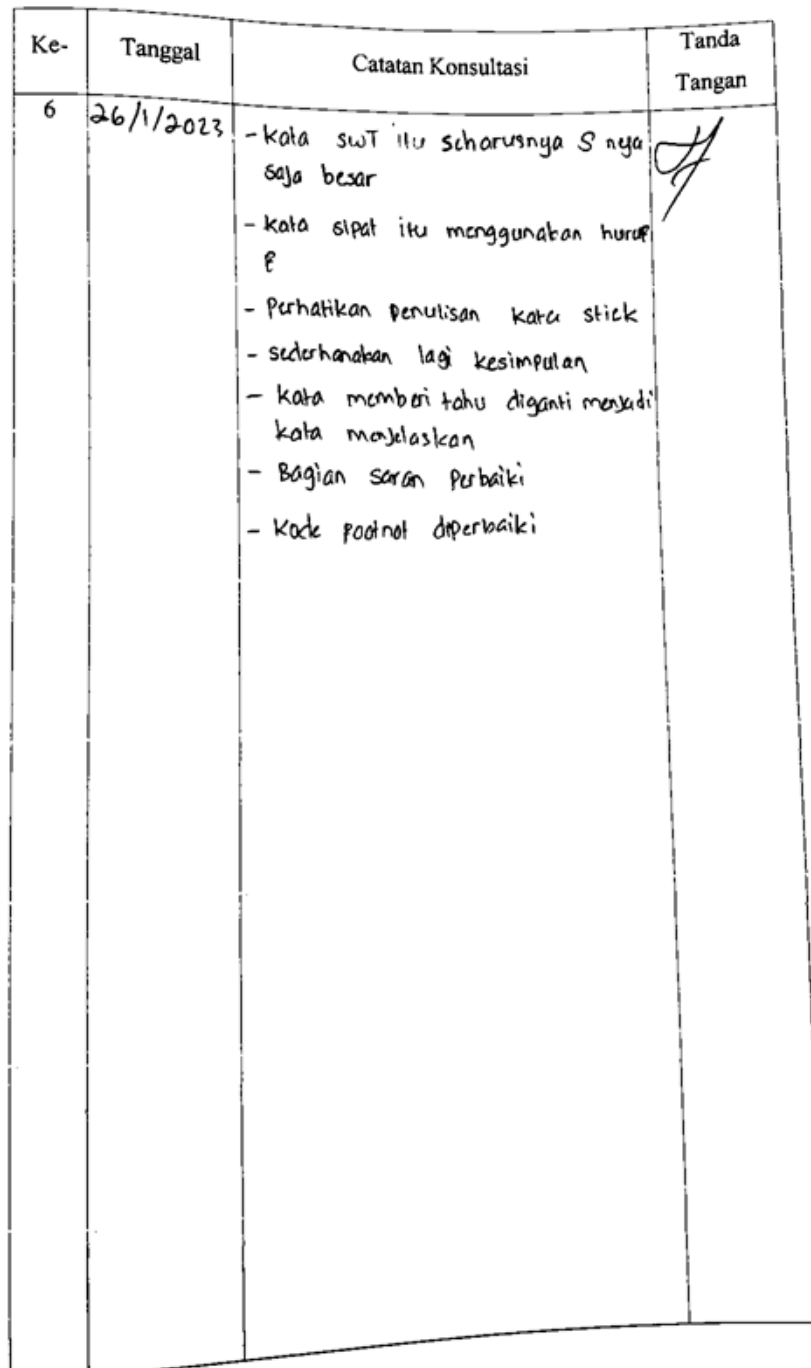 Ke- Tanggal Catatan Konsultasi Tanda Tangan
6 26/1/2023
- kata SWT itu seharusnya S nya
saja besar
- kata sipat itu menggunakan huruf
F
- Perhatikan penulisan kata stick
- sederhanakan lagi kesimpulan
- kata memberi tahu diganti menjadi
kata menjelaskan
- Bagian saran Perbaiki
- Kode footnot diperbaiki